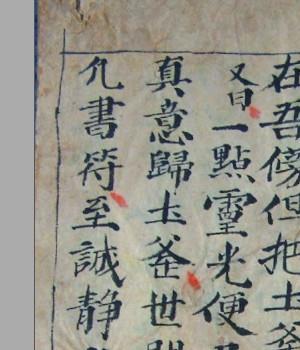 在吾傍但把土釜
又曰一點靈光便
真意歸土釜世間
凢書符至誠靜